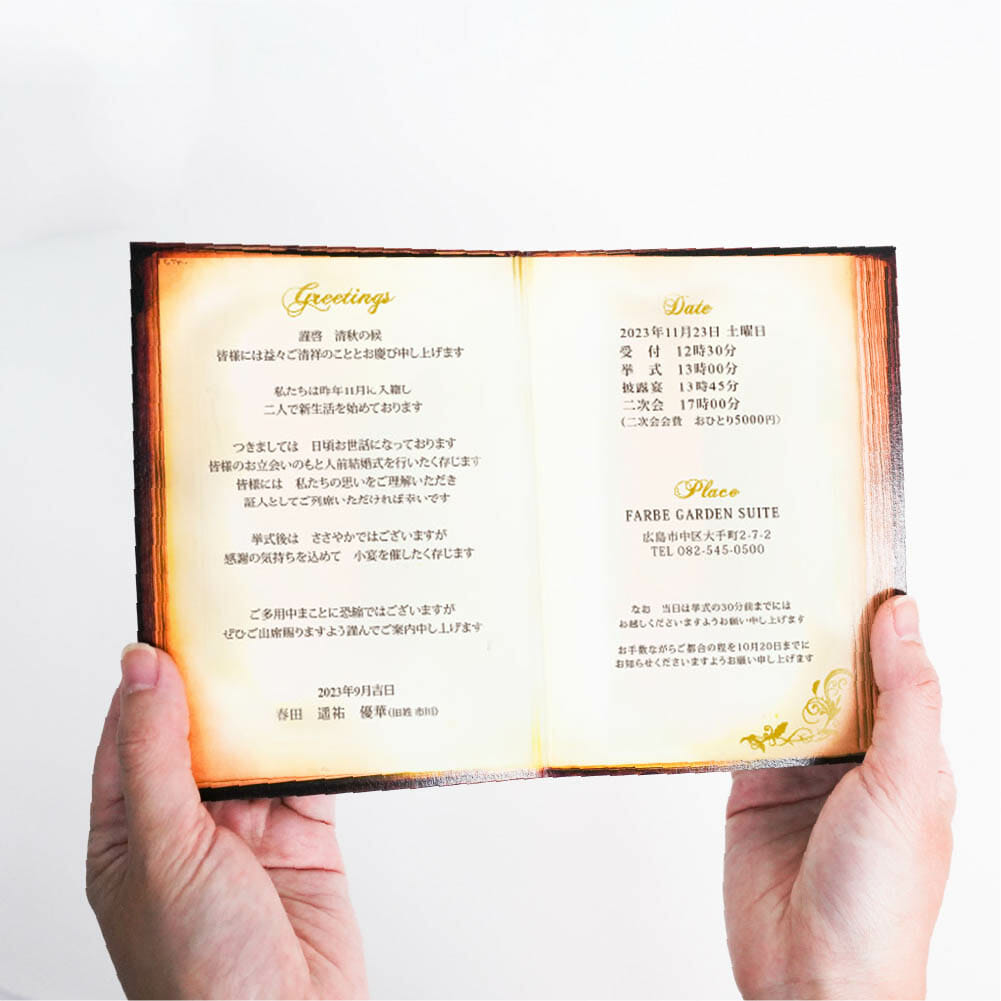 Greetings
謹啓　清秋の候
皆様には益々ご清祥のこととお慶び申し上げます
私たちは昨年11月に入籍し
二人で新生活を始めております
つきましては　日頃お世話になっております
皆様のお立会いのもと人前結婚式を行いたく存じます
皆様には　私たちの思いをご理解いただき
証人としてご列席いただければ幸いです
挙式後は　ささやかではございますが
感謝の気持ちを込めて　小宴を催したく存じます
ご多用中まことに恐縮ではございますが
ぜひご出席賜りますよう謹んでご案内申し上げます
2023年9月吉日
春田　遥祐　優華(旧姓 市川)
Date
2023年11月23日 土曜日
受　付　12時30分
挙　式　13時00分
披露宴　13時45分
二次会　17時00分
(二次会会費　おひとり5000円)
Place
FARBE GARDEN SUITE
広島市中区大手町2-7-2
TEL 082-545-0500
なお　当日は挙式の30分前までには
お越しくださいますようお願い申し上げます
お手数ながらご都合の程を10月20日までに
お知らせくださいますようお願い申し上げます